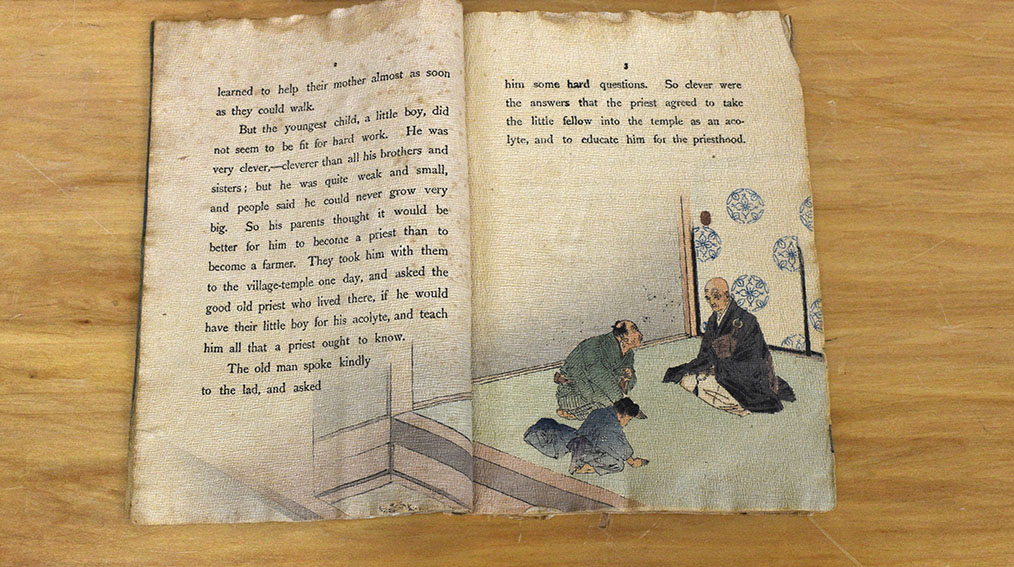 2
learned to help their mother almost as soon
as they could walk.
But the youngest child, a little boy, did
not seem to be fit for hard work. He was
very clever,—cleverer than all his brothers and
sisters; but he was quite weak and small,
and people said he could never grow very
big. So his parents thought it would be
better for him to become a priest than to
become a farmer. They took him with them
to the village-temple one day, and asked the
good old priest who lived there, if he would
have their little boy for his acolyte, and teach
him all that a priest ought to know.
The old man spoke kindly
to the lad, and asked
3
him some hard questions. So clever were
the answers that the priest agreed to take
the little fellow into the temple as an aco-
lyte, and to educate him for the priesthood.